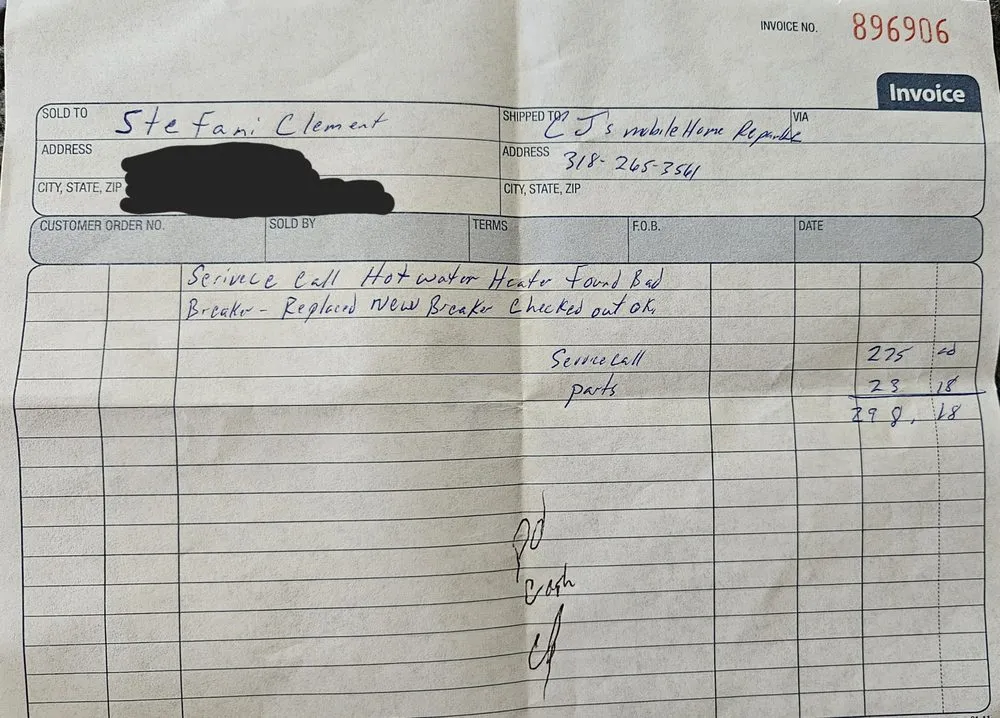 INVOICE NO. 896906
Invoice
SOLD TO Stefani Clement
SHIPPED TO CJ's mobile Home Repair
VIA
ADDRESS
ADDRESS 318-265-3561
CITY, STATE, ZIP
CITY, STATE, ZIP
CUSTOMER ORDER NO. SOLD BY TERMS F.O.B. DATE
Serivece Call Hot water Heater Found Bad
Breaker - Replaced New Breaker Checked out ok.
Service call 275 00
parts 23 18
298. 18
pd
cash